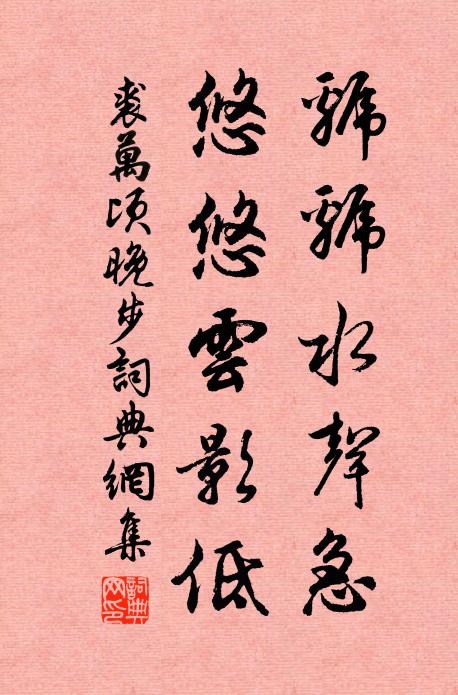 虢虢水聲急
悠悠雲影低
裘萬頃晚步詞典網集
詞典
网印